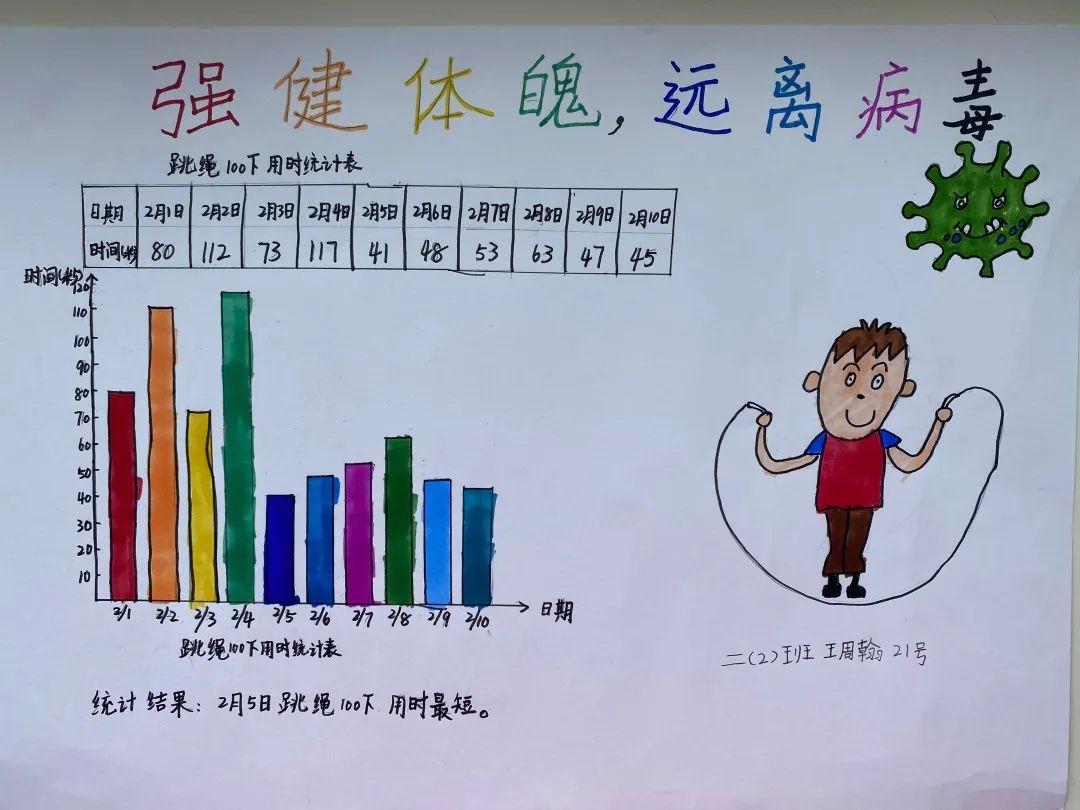 强健体魄,远离病毒
跳绳100下用时统计表
日期 2月1日 2月2日 2月3日 2月4日 2月5日 2月6日 2月7日 2月8日 2月9日 2月10日
时间(秒) 80 112 73 117 41 48 53 63 47 45
时间(秒)
120
110
100
90
80
70
60
50
40
30
20
10
2/1 2/2 2/3 2/4 2/5 2/6 2/7 2/8 2/9 2/10 日期
跳绳100下用时统计表
二(2)班 王周翰 21号
统计结果: 2月5日跳绳100下用时最短。